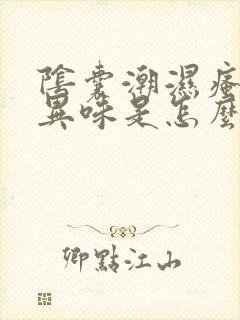 陰囊潮濕瘙
異味是怎麼
卿點江山